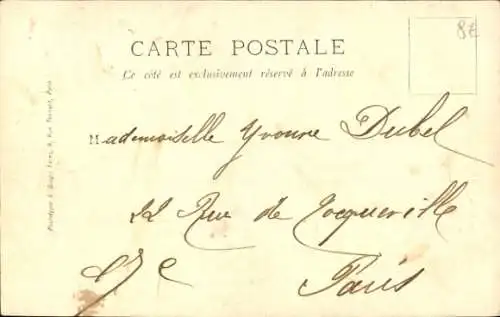 CARTE POSTALE
Ce côté est exclusivement réservé à l'adresse
8E
Mademoiselle Yvonne Dubel
22 Rue de Tocqueville
17e Paris